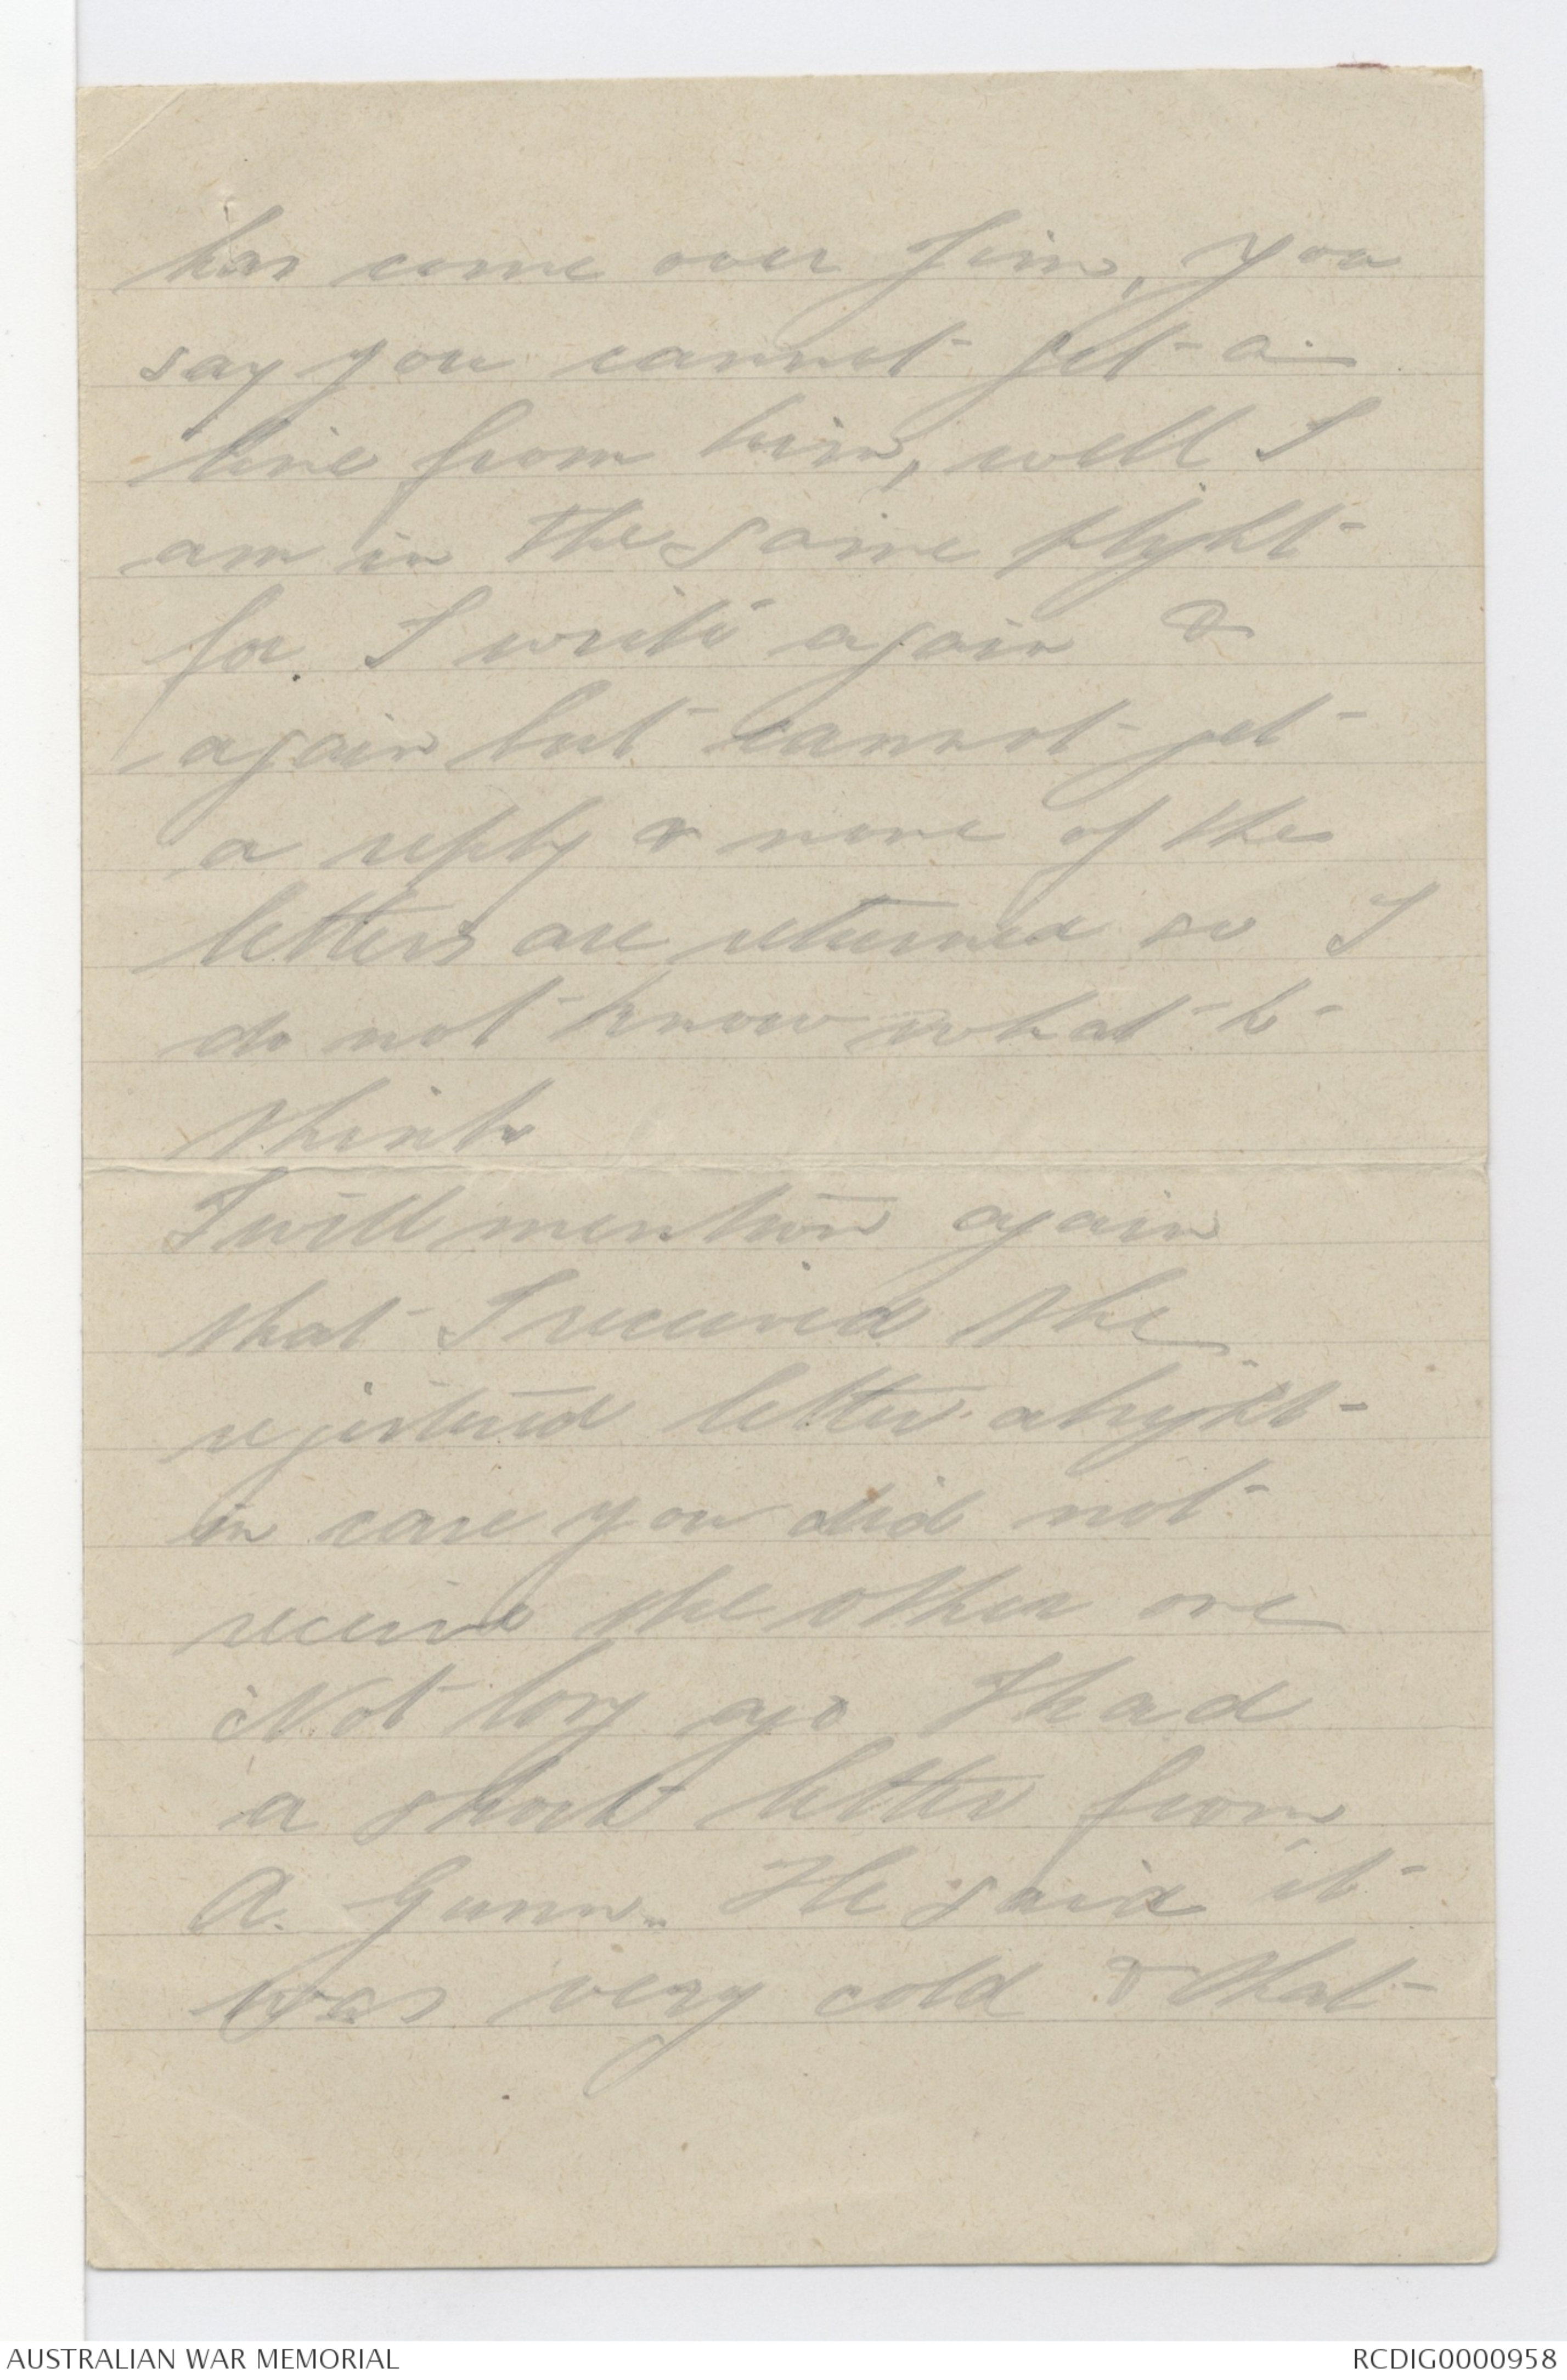 has come over Jim, you
say you cannot get a
line from him, well I
am in the same plight
for I write again &
again but cannot get
a reply & none of the
letters are returned so I
do not know what to
think
I will mention again
that I received the
registered letter alright
in case you did not
receive the other one
Not long ago I had
a short letter from
A. Gunn. He said it
was very cold & that
AUSTRALIAN WAR MEMORIAL
RCDIG0000958